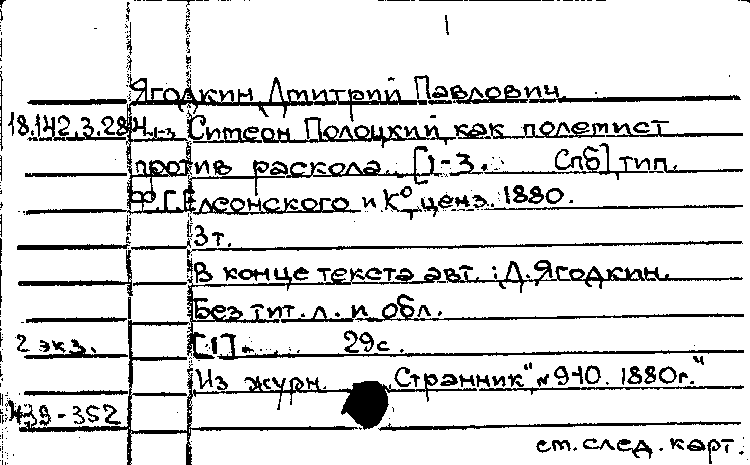 Ягодкин, Дмитрий Павлович.
18.142.3.284 1-3 Симеон Полоцкий, как полемист
против раскола. [1-3. Спб], тип.
Ф.Г. Елеонского и К°, ценз. 1880.
3 т.
В конце текста авт.: Д. Ягодкин.
Без тит. л. и обл.
2 экз. [1]. 29 с.
Из журн. „Странник", № 9-10. 1880 г."
439-352
см. след. карт.